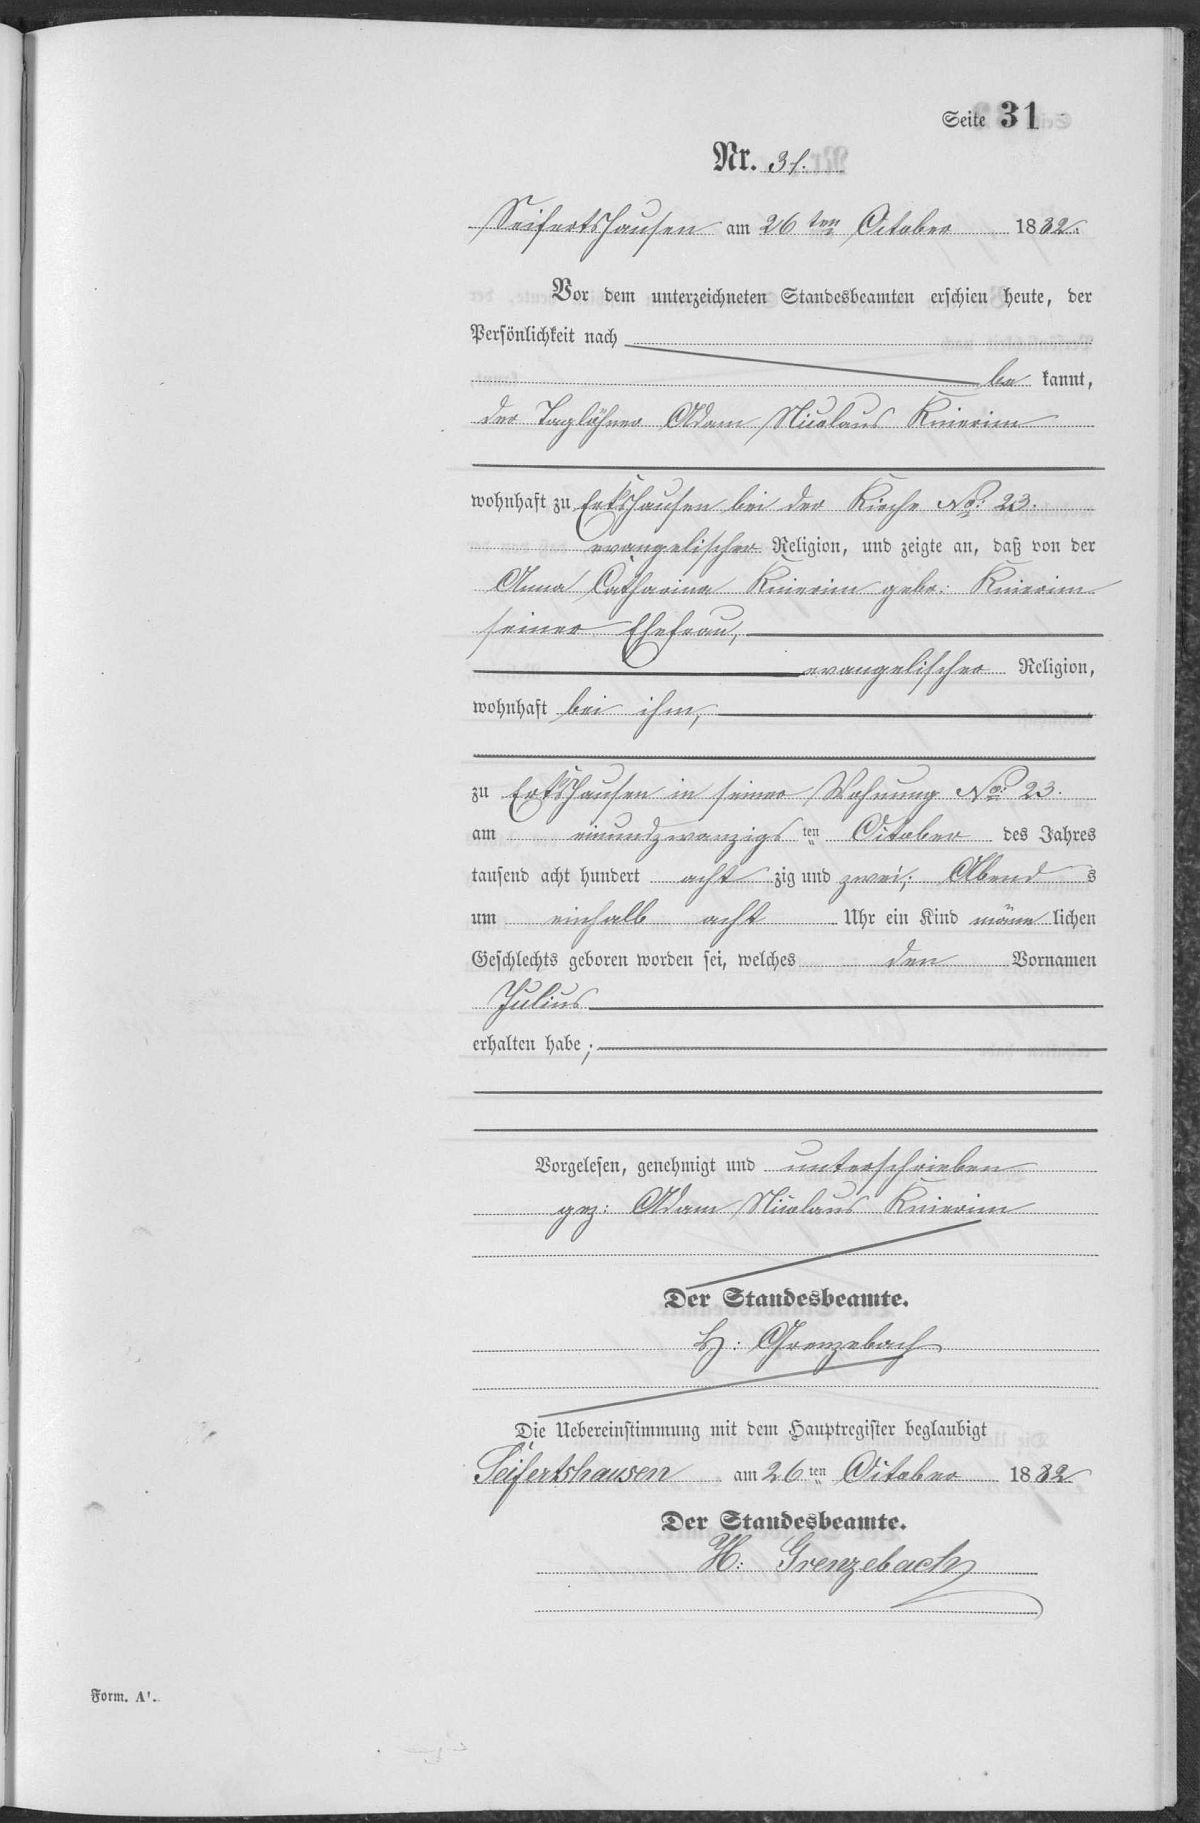 Seite 31
Nr. 31.
Seifertshausen am 26ten October 1882.
Vor dem unterzeichneten Standesbeamten erschien heute, der
Persönlichkeit nach
be kannt,
der Taglöhner Adam Nicolaus Knierim
wohnhaft zu Erkshausen bei der Kirche No: 23.
evangelischer Religion, und zeigte an, daß von der
Anna Catharina Knierim gebr. Knierim
seiner Ehefrau,
evangelischer Religion,
wohnhaft bei ihm,
zu Erkshausen in seiner Wohnung No: 23.
am einundzwanzigs ten October des Jahres
tausend acht hundert acht zig und zwei, Abend s
um einhalb acht Uhr ein Kind männ lichen
Geschlechts geboren worden sei, welches den Vornamen
Julius
erhalten habe;
Vorgelesen, genehmigt und unterschrieben
gez: Adam Nicolaus Knierim
Der Standesbeamte.
H: Grenzebach
Die Uebereinstimmung mit dem Hauptregister beglaubigt
Seifertshausen am 26ten October 1882
Der Standesbeamte.
H: Grenzebach
Form. A¹.